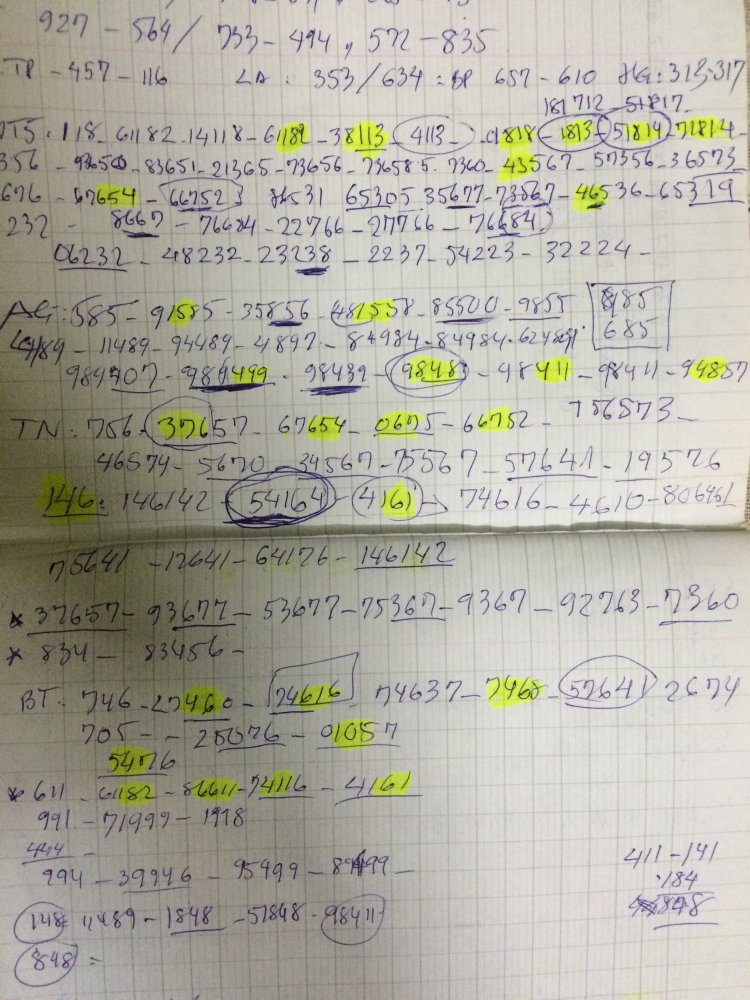 927 - 564 / 733 - 494, 572 - 835
TP - 457 - 116 LA: 353 / 634 = BP 657 - 610 HG: 313-317
181712 - 51817.
118 - 61182 - 14118 - 61182 - 38113 - 4113 - 01818 - 1813 - 51814 - 71814 -
356 - 93650 - 83651 - 21365 - 73656 - 736585. 7360 - 43567 - 57356 - 36573
676 - 67654 - 66752 86531 65305 35677 - 73567 - 46536 - 65319
232 - 8667 - 76684 - 22766 - 27766 - 76684
06232 - 48232 - 23238 - 2237 - 54223 - 32224 -
AG: 585 - 91585 - 35856 - 481558 - 85500 - 9855 885
489 - 11489 - 94489 - 4897 - 84984 - 84984 - 685
984407 - 984499 - 98439 - 98483 - 98411 - 98411 - 94857
TN: 756 - 37657 - 67654 - 0675 - 66752 - 756573 -
46574 - 5670 - 34567 - 75567 - 57641 - 19576
146: 146142 - 54164 - 4161 - 74616 - 4610 - 806461
75641 - 12641 - 64176 - 146142
* 37657 - 93677 - 53677 - 75367 - 9367 - 92763 - 7360
* 834 - 83456 -
BT. 746 - 27460 - 74616 74637 - 7468 - 57641 2674
705 - - 25076 - 01057
5476
* 611 - 61182 - 86611 - 74116 - 4161
991 - 71999 - 1978
444 -
994 - 39946 - 95499 - 89499 -
411 - 141
184
148= 11489 - 1848 - 51848 - 98411
848
848 =